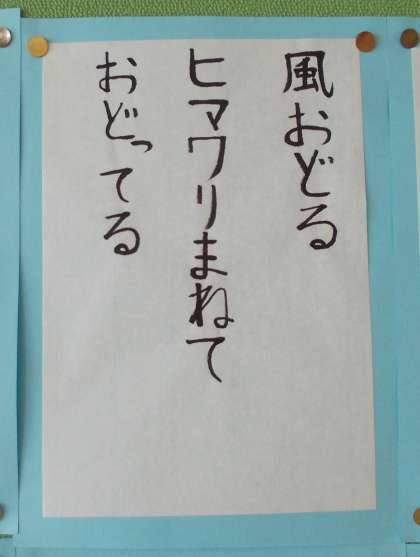 風おどる
ヒマワリまねて
おどってる